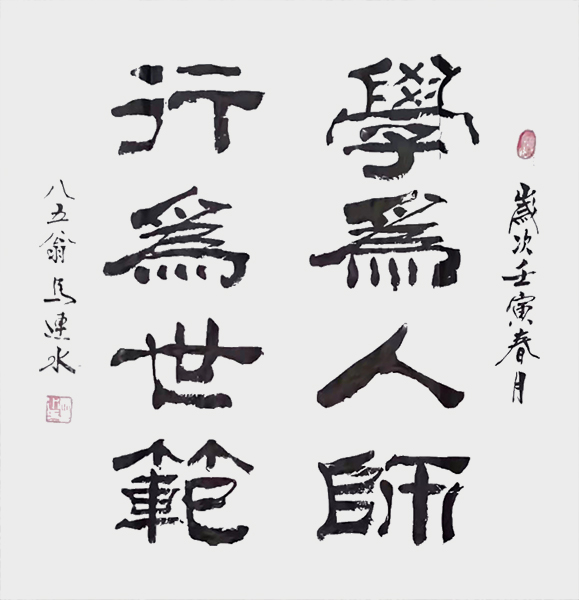 歲次壬寅春月
學為人師
行為世範
八五翁馬連水